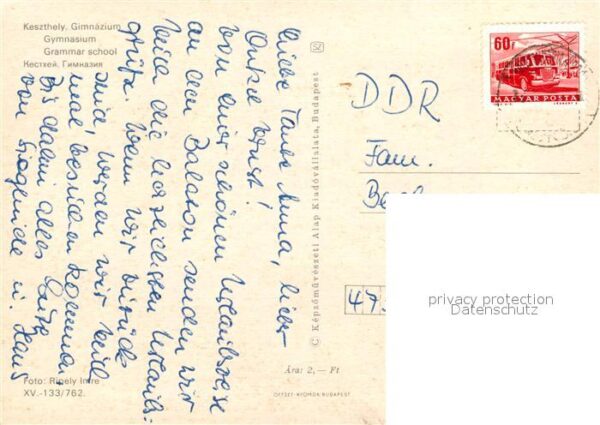 Keszthely. Gimnázium
Gymnasium
Grammar school
Кестхей. Гимназия
Liebe Tante Anna, lieber
Onkel Ernst!
Von einer schönen Urlaubsreise
an den Balaton senden wir
Euch die herzlichsten Urlaubs-
grüße. Wenn wir zurück
sind, werden wir Euch
mal besuchen kommen.
Bis dahin alles Gute
von u. Hans
Foto: Ripely Imre
XV.-133/762.
SZ
© Képzőművészeti Alap Kiadóvállalata, Budapest
Ára: 2,— Ft
OFFSET-NYOMDA BUDAPEST
60f
MAGYAR POSTA
DDR
Fam.
47
privacy protection
Datenschutz